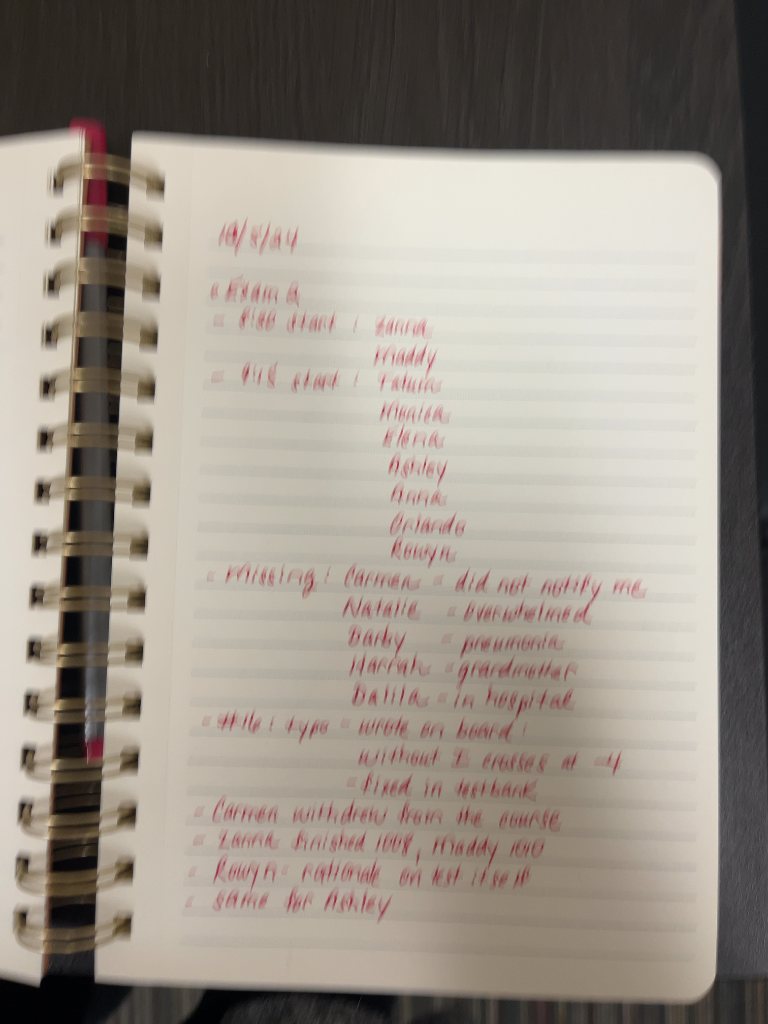 10/8/24
• Exam 2
- start : Zanna
Maddy
- 9:15 start : Fatuma
Monica
Elena
Ashley
Anna
Orlando
Rowyn
- Missing : Carmen - did not notify me
Natalie - overwhelmed
Darby - pneumonia
Hannah - grandmother
Dalila - in hospital
- typo - wrote on board :
without I crosses at -4
- fixed in testbank
- Carmen withdrew from the course
- Zanna finished 1008, Maddy 1010
- Rowyn - rationale on test itself
- same for Ashley